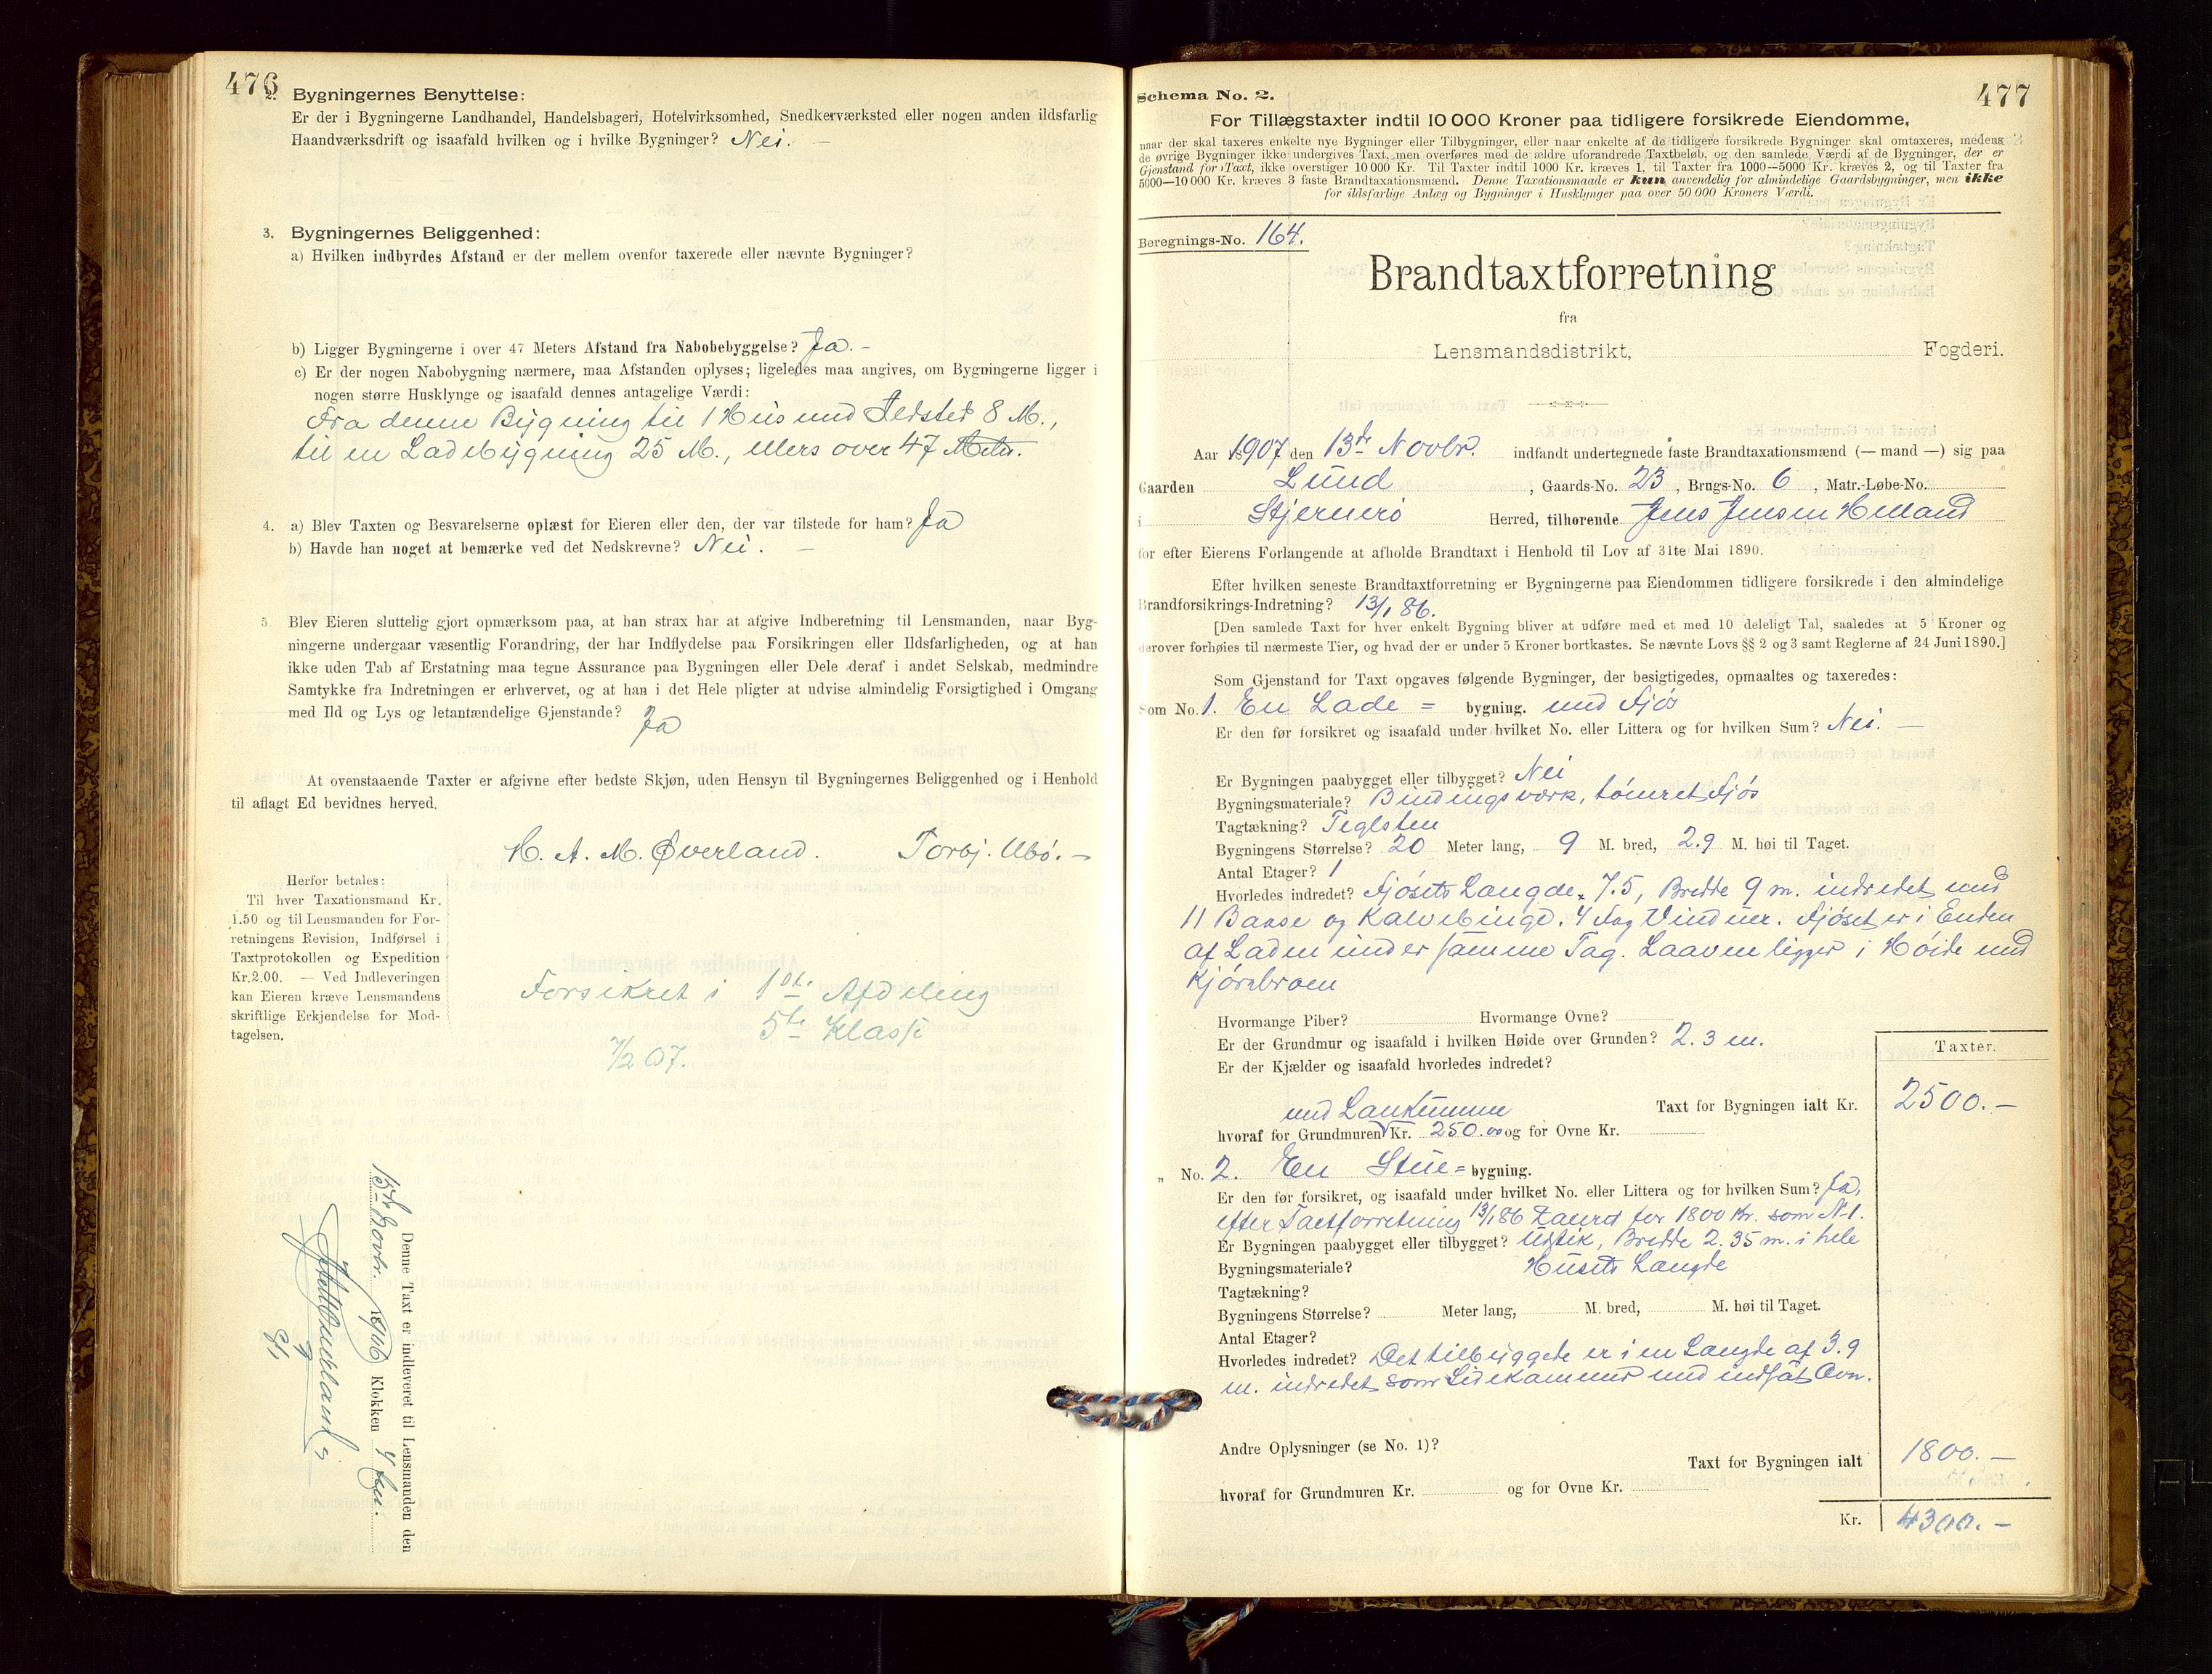 476
2. Bygningernes Benyttelse:
Er der i Bygningerne Landhandel, Handelsbageri, Hotelvirksomhed, Snedkerværksted eller nogen anden ildsfarlig
Haandværksdrift og isaafald hvilken og i hvilke Bygninger? Nei. –
3. Bygningernes Beliggenhed:
a) Hvilken indbyrdes Afstand er der mellem ovenfor taxerede eller nævnte Bygninger?
b) Ligger Bygningerne i over 47 Meters Afstand fra Nabobebyggelse? Ja. –
c) Er der nogen Nabobygning nærmere, maa Afstanden oplyses; ligeledes maa angives, om Bygningerne ligger i
nogen større Husklynge og isaafald dennes antagelige Værdi:
Fra denne Bygning til 1 Hus med Ildsted 8 M.,
til en Ladebygning 25 M., ellers over 47 Meter.
4. a) Blev Taxten og Besvarelserne oplæst for Eieren eller den, der var tilstede for ham? Ja
b) Havde han noget at bemærke ved det Nedskrevne? Nei. –
5. Blev Eieren sluttelig gjort opmærksom paa, at han strax har at afgive Indberetning til Lensmanden, naar Byg-
ningerne undergaar væsentlig Forandring, der har Indflydelse paa Forsikringen eller Ildsfarligheden, og at han
ikke uden Tab af Erstatning maa tegne Assurance paa Bygningen eller Dele deraf i andet Selskab, medmindre
Samtykke fra Indretningen er erhvervet, og at han i det Hele pligter at udvise almindelig Forsigtighed i Omgang
med Ild og Lys og letantændelige Gjenstande? Ja
At ovenstaaende Taxter er afgivne efter bedste Skjøn, uden Hensyn til Bygningernes Beliggenhed og i Henhold
til aflagt Ed bevidnes herved.
H. A. M. Øverland. Torbj. Ubø. –
Herfor betales:
Til hver Taxationsmand Kr.
1.50 og til Lensmanden for For-
retningens Revision, Indførsel i
Taxtprotokollen og Expedition
Kr.2.00. — Ved Indleveringen
kan Eieren kræve Lensmandens
skriftlige Erkjendelse for Mod-
tagelsen.
Forsikret i 1ste Afdeling
5te Klasse
7/2 07.
Denne Taxt er indleveret til Lensmanden den
15de Novbr. 1906 Klokken 4 Em.
477
Schema No. 2.
For Tillægstaxter indtil 10 000 Kroner paa tidligere forsikrede Eiendomme,
naar der skal taxeres enkelte nye Bygninger eller Tilbygninger, eller naar enkelte af de tidligere forsikrede Bygninger skal omtaxeres, medens
de øvrige Bygninger ikke undergives Taxt, men overføres med de ældre uforandrede Taxtbeløb, og den samlede Værdi af de Bygninger, der er
Gjenstand for Taxt, ikke overstiger 10 000 Kr. Til Taxter indtil 1000 Kr. kræves 1, til Taxter fra 1000—5000 Kr. kræves 2, og til Taxter fra
5000—10 000 Kr. kræves 3 faste Brandtaxationsmænd. Denne Taxationsmaade er kun anvendelig for almindelige Gaardsbygninger, men ikke
for ildsfarlige Anlæg og Bygninger i Husklynger paa over 50 000 Kroners Værdi.
Beregnings-No. 164.
Brandtaxtforretning
fra
Lensmandsdistrikt, Fogderi.
Aar 1907 den 13de Novbr. indfandt undertegnede faste Brandtaxationsmænd (— mand —) sig paa
Gaarden Lund, Gaards-No. 23, Brugs-No. 6, Matr.-Løbe-No.
i Stjernerö Herred, tilhørende Jens Jensen Helland
for efter Eierens Forlangende at afholde Brandtaxt i Henhold til Lov af 31te Mai 1890.
Efter hvilken seneste Brandtaxtforretning er Bygningerne paa Eiendommen tidligere forsikrede i den almindelige
Brandforsikrings-Indretning? 13/1 86.
[Den samlede Taxt for hver enkelt Bygning bliver at udføre med et med 10 deleligt Tal, saaledes at 5 Kroner og
derover forhøies til nærmeste Tier, og hvad der er under 5 Kroner bortkastes. Se nævnte Lovs §§ 2 og 3 samt Reglerne af 24 Juni 1890.]
Som Gjenstand for Taxt opgaves følgende Bygninger, der besigtigedes, opmaaltes og taxeredes:
Som No. 1. En Lade = bygning. med Fjøs
Er den før forsikret og isaafald under hvilket No. eller Littera og for hvilken Sum? Nei. –
Er Bygningen paabygget eller tilbygget? Nei
Bygningsmateriale? Bindingsværk, tømret Fjøs
Tagtækning? Teglsten
Bygningens Størrelse? 20 Meter lang, 9 M. bred, 2.9 M. høi til Taget.
Antal Etager? 1
Hvorledes indredet? Fjøsets Længde 7.5, Bredde 9 m. indredet med
11 Baase og Kalvebinge. 4 Fag Vinduer. Fjøset er i Enden
af Laden under samme Tag. Laaven ligger i Høide med
Kjørebroen
Hvormange Piber? Hvormange Ovne?
Er der Grundmur og isaafald i hvilken Høide over Grunden? 2.3 m.
Er der Kjælder og isaafald hvorledes indredet?
Taxter.
med Lankumme Taxt for Bygningen ialt Kr. 2500. –
hvoraf for Grundmuren Kr. 250.00 og for Ovne Kr.
„ No. 2. En Stue = bygning.
Er den før forsikret, og isaafald under hvilket No. eller Littera og for hvilken Sum? Ja,
efter Taxtforretning 13/1 86 taxeret for 1800 Kr. som N-1.
Er Bygningen paabygget eller tilbygget? Udstik, Bredde 2.35 m. i hele
Bygningsmateriale? Husets Længde
Tagtækning?
Bygningens Størrelse? Meter lang, M. bred, M. høi til Taget.
Antal Etager?
Hvorledes indredet? Det tilbyggede er i en Længde af 3.9
m. indredet som Sidekammer med indsat Ovn.
Andre Oplysninger (se No. 1)?
Taxt for Bygningen ialt 1800. –
hvoraf for Grundmuren Kr. og for Ovne Kr.
Kr. 4300. –